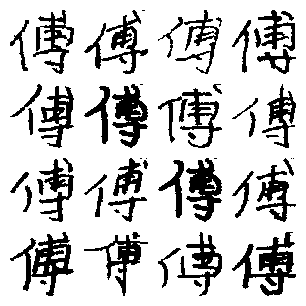 傅傅傅傅
傅傅傅傅
傅傅傅傅
傅傅傅傅